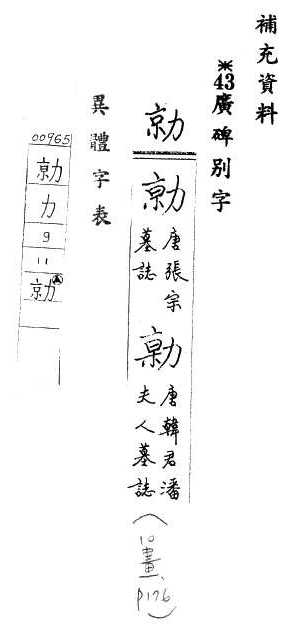 補充資料
※43廣碑別字
勍
唐張宗
墓誌
唐韓君潘
夫人墓誌
(10畫、p176)
異體字表
00965
力
9
11
勍